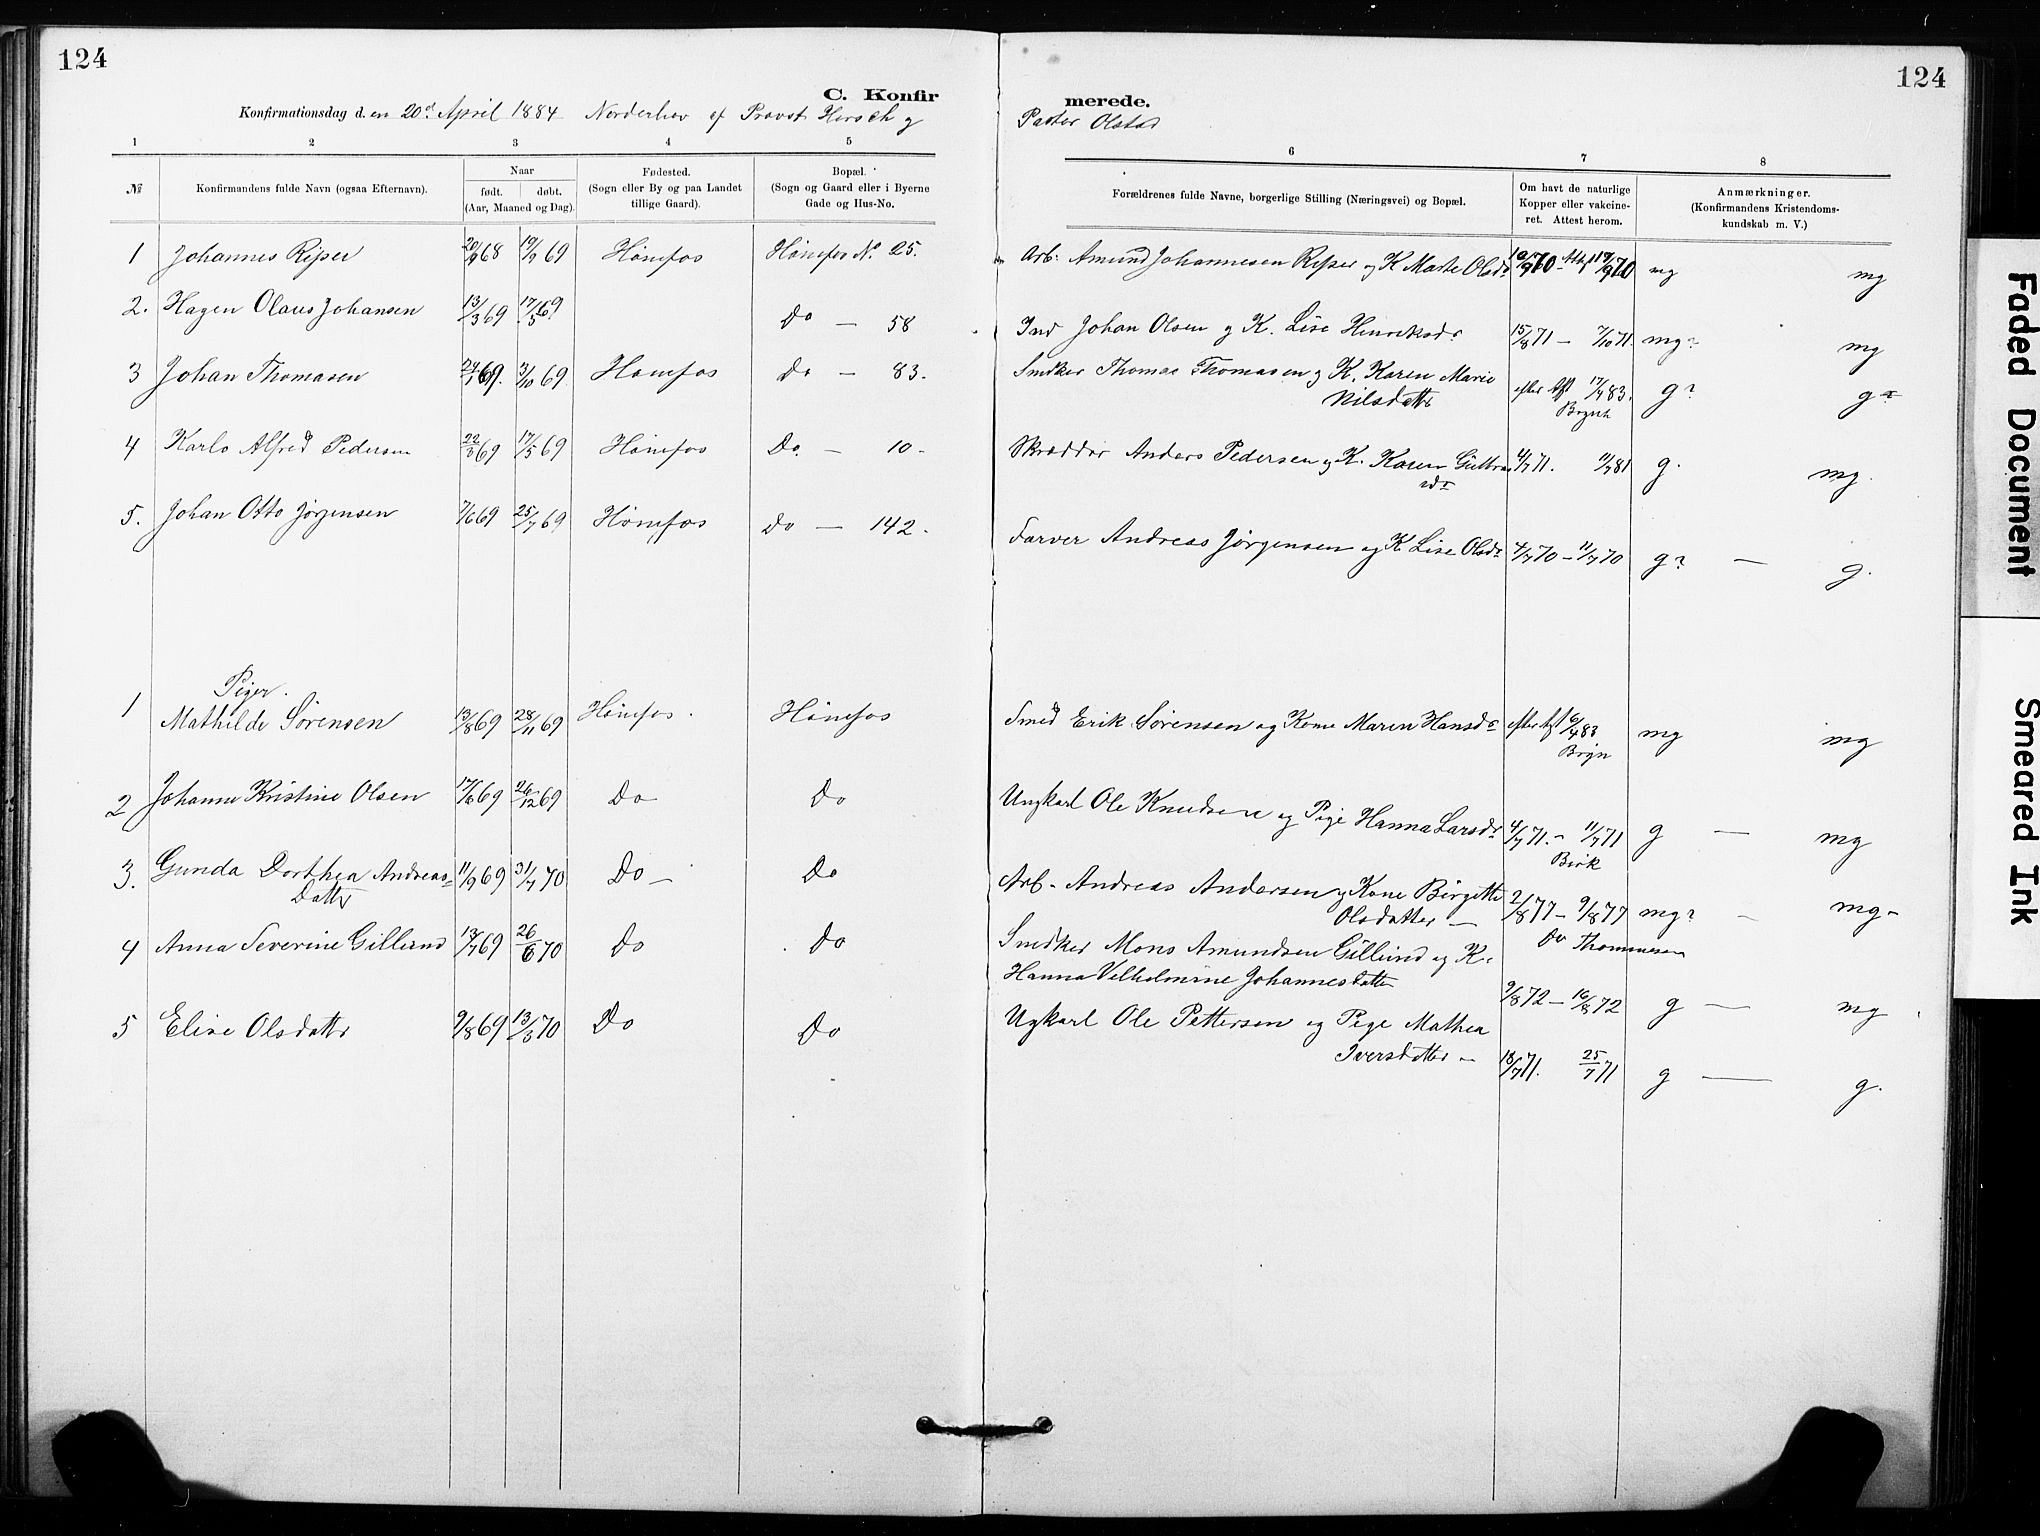 124
124
C. Konfir merede.
Konfirmationsdag d. en 20de April 1884 Norderhov af Provst Hersch og Pastor Olstad
1 2 3 4 5 6 7 8
№
Konfirmandens fulde Navn (ogsaa Efternavn).
Naar
født. døbt.
(Aar, Maaned og Dag).
Fødested.
(Sogn eller By og paa Landet
tillige Gaard).
Bopæl.
(Sogn og Gaard eller i Byerne
Gade og Hus-No.
Forældrenes fulde Navne, borgerlige Stilling (Næringsvei) og Bopæl.
Om havt de naturlige
Kopper eller vakcine-
ret. Attest herom.
Anmærkninger.
(Konfirmandens Kristendoms-
kundskab m. V.)
1 Johannes Ripser 20/9 68 19/9 69 Hønefos Hønefos No. 25. Arb: Amund Johannesen Ripser og K Marte Olsdr 10/9 70 - Att 17/9 70 mg mg
2. Hagen Olaus Johansen 13/3 69 17/5 69 Do — 58 Ind Johan Olsen og K. Lise Henriksdr 15/8 71 — 7/10 71. mg? mg
3 Johan Thomasen 24/1 69. 3/10 69 Hønefos Do — 83. Snedker Thomas Thomasen og K. Karen Marie
Nilsdatter efter Att 17/7 83.
g? g?
4 Karlo Alfred Pedersen 22/3 69 17/5 69 Hønefos Do. — 10 - Skrædder Anders Pedersen og K. Karen Gulbran
sdr 4/7 71. 11/7 81 g. mg.
5. Johan Otto Jørgensen 7/6 69 25/7 69 Hønefos Do — 142 - Farver Andreas Jørgensen og K Lise Olsdr 4/7 70 — 11/7 70 g? — g.
Piger.
1 Mathilde Sørensen 13/8 69 28/11 69 Hønefos. Hønefos Smed Erik Sørensen og Kone Maren Hansdr efter Att 6/4 83
mg mg
2 Johanne Kristine Olsen 17/6 69 26/12 69 Do Do Ungkarl Ole Knudsen og Pige Hanna Larsdr 4/7 71. — 11/7 71
Birk g — mg
3. Gunda Dorthea Andreas=
Dattr 11/9 69 31/7 70 Do — Do Arb - Andreas Andersen og Kone Birgitte
Olsdatter — 2/8 77 — 9/8 77 mg? — mg -
Dr Thommesen
4 Anna Severine Gillund 13/7 69 26/6 70 Do Do Snedker Mons Amundsen Gillund og K.
Hanna Velhelmine Johannesdatter 9/8 72 — 16/8 72 g — mg
5 Elise Olsdattr 9/8 69 13/3 70 Do Do Ugkarl Ole Pettersen og Pige Mathea
Iversdatter — 18/7 71. 25/7 71 g — g.
Faded Document
Smeared Ink